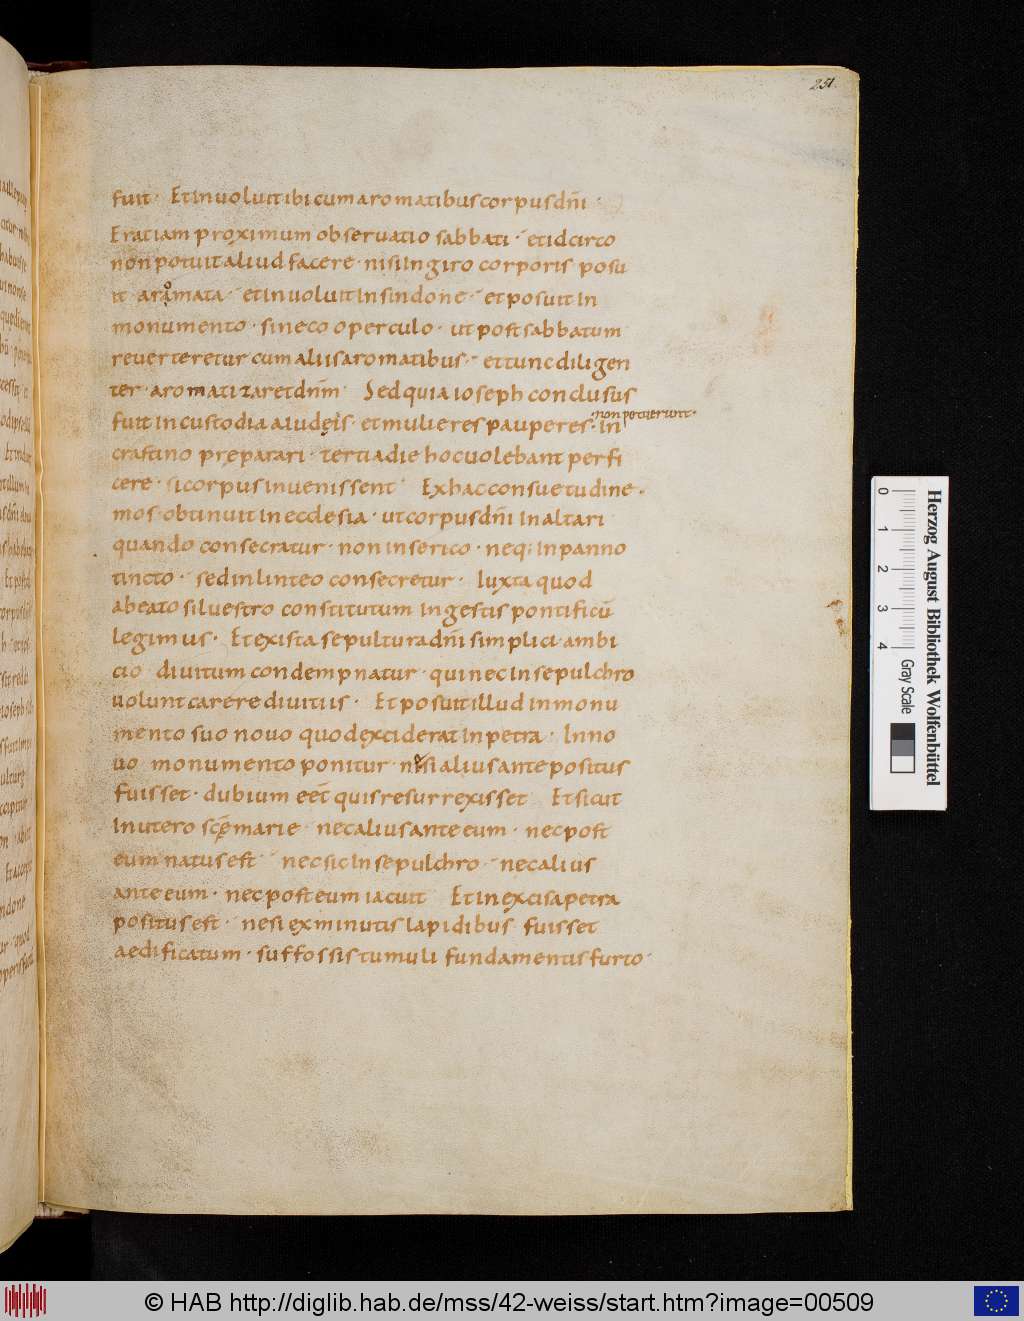 251.
fuit· Et inuoluit ibi cum aromatibus corpus dñi·
Erat iam proximum obseruatio sabbati· et idcirco
non potuit aliud facere· nisi in giro corporis posu
it aromata· et inuoluit in sindone· et posuit in
monumento· sine cooperculo· ut post sabbatum
reuerteretur cum aliis aromatibus· et tunc diligen
ter· aromatizaret dnm̄ Sed quia ioseph conclusus
·non potuerunt·
fuit in custodia a iudęis· et mulieres pauperes· in
crastino pręparari· tertia die hoc uolebant perfi
cere· si corpus inuenissent Ex hac consuetudine·
mos· obtinuit in ecclesia· ut corpus dñi in altari
quando consecratur· non in serico· neq; in panno
tincto· sed in linteo consecretur· Iuxta quod
a beato siluestro constitutum in gestis pontificū
legimus· Et ex ista sepultura dñi simplici· ambi
cio diuitum condempnatur· qui nec in sepulchro
uolunt carere diuitiis· Et posuit illud in monu
mento suo nouo quod exciderat in petra· In no
uo monumento ponitur· nesi alius ante positus
fuisset· dubium eēt quis resurrexisset Et sicut
in utero scę marie nec alius ante eum· nec post
eum natus est nec sic in sepulchro· nec alius
ante eum· nec post eum iacuit Et in excisa petra
positus est· nesi ex minutis lapidibus fuisset
aedificatum· suffossis tumuli fundamentis furto·
0 1 2 3 4
Gray Scale
Herzog August Bibliothek Wolfenbüttel
© HAB http://diglib.hab.de/mss/42-weiss/start.htm?image=00509